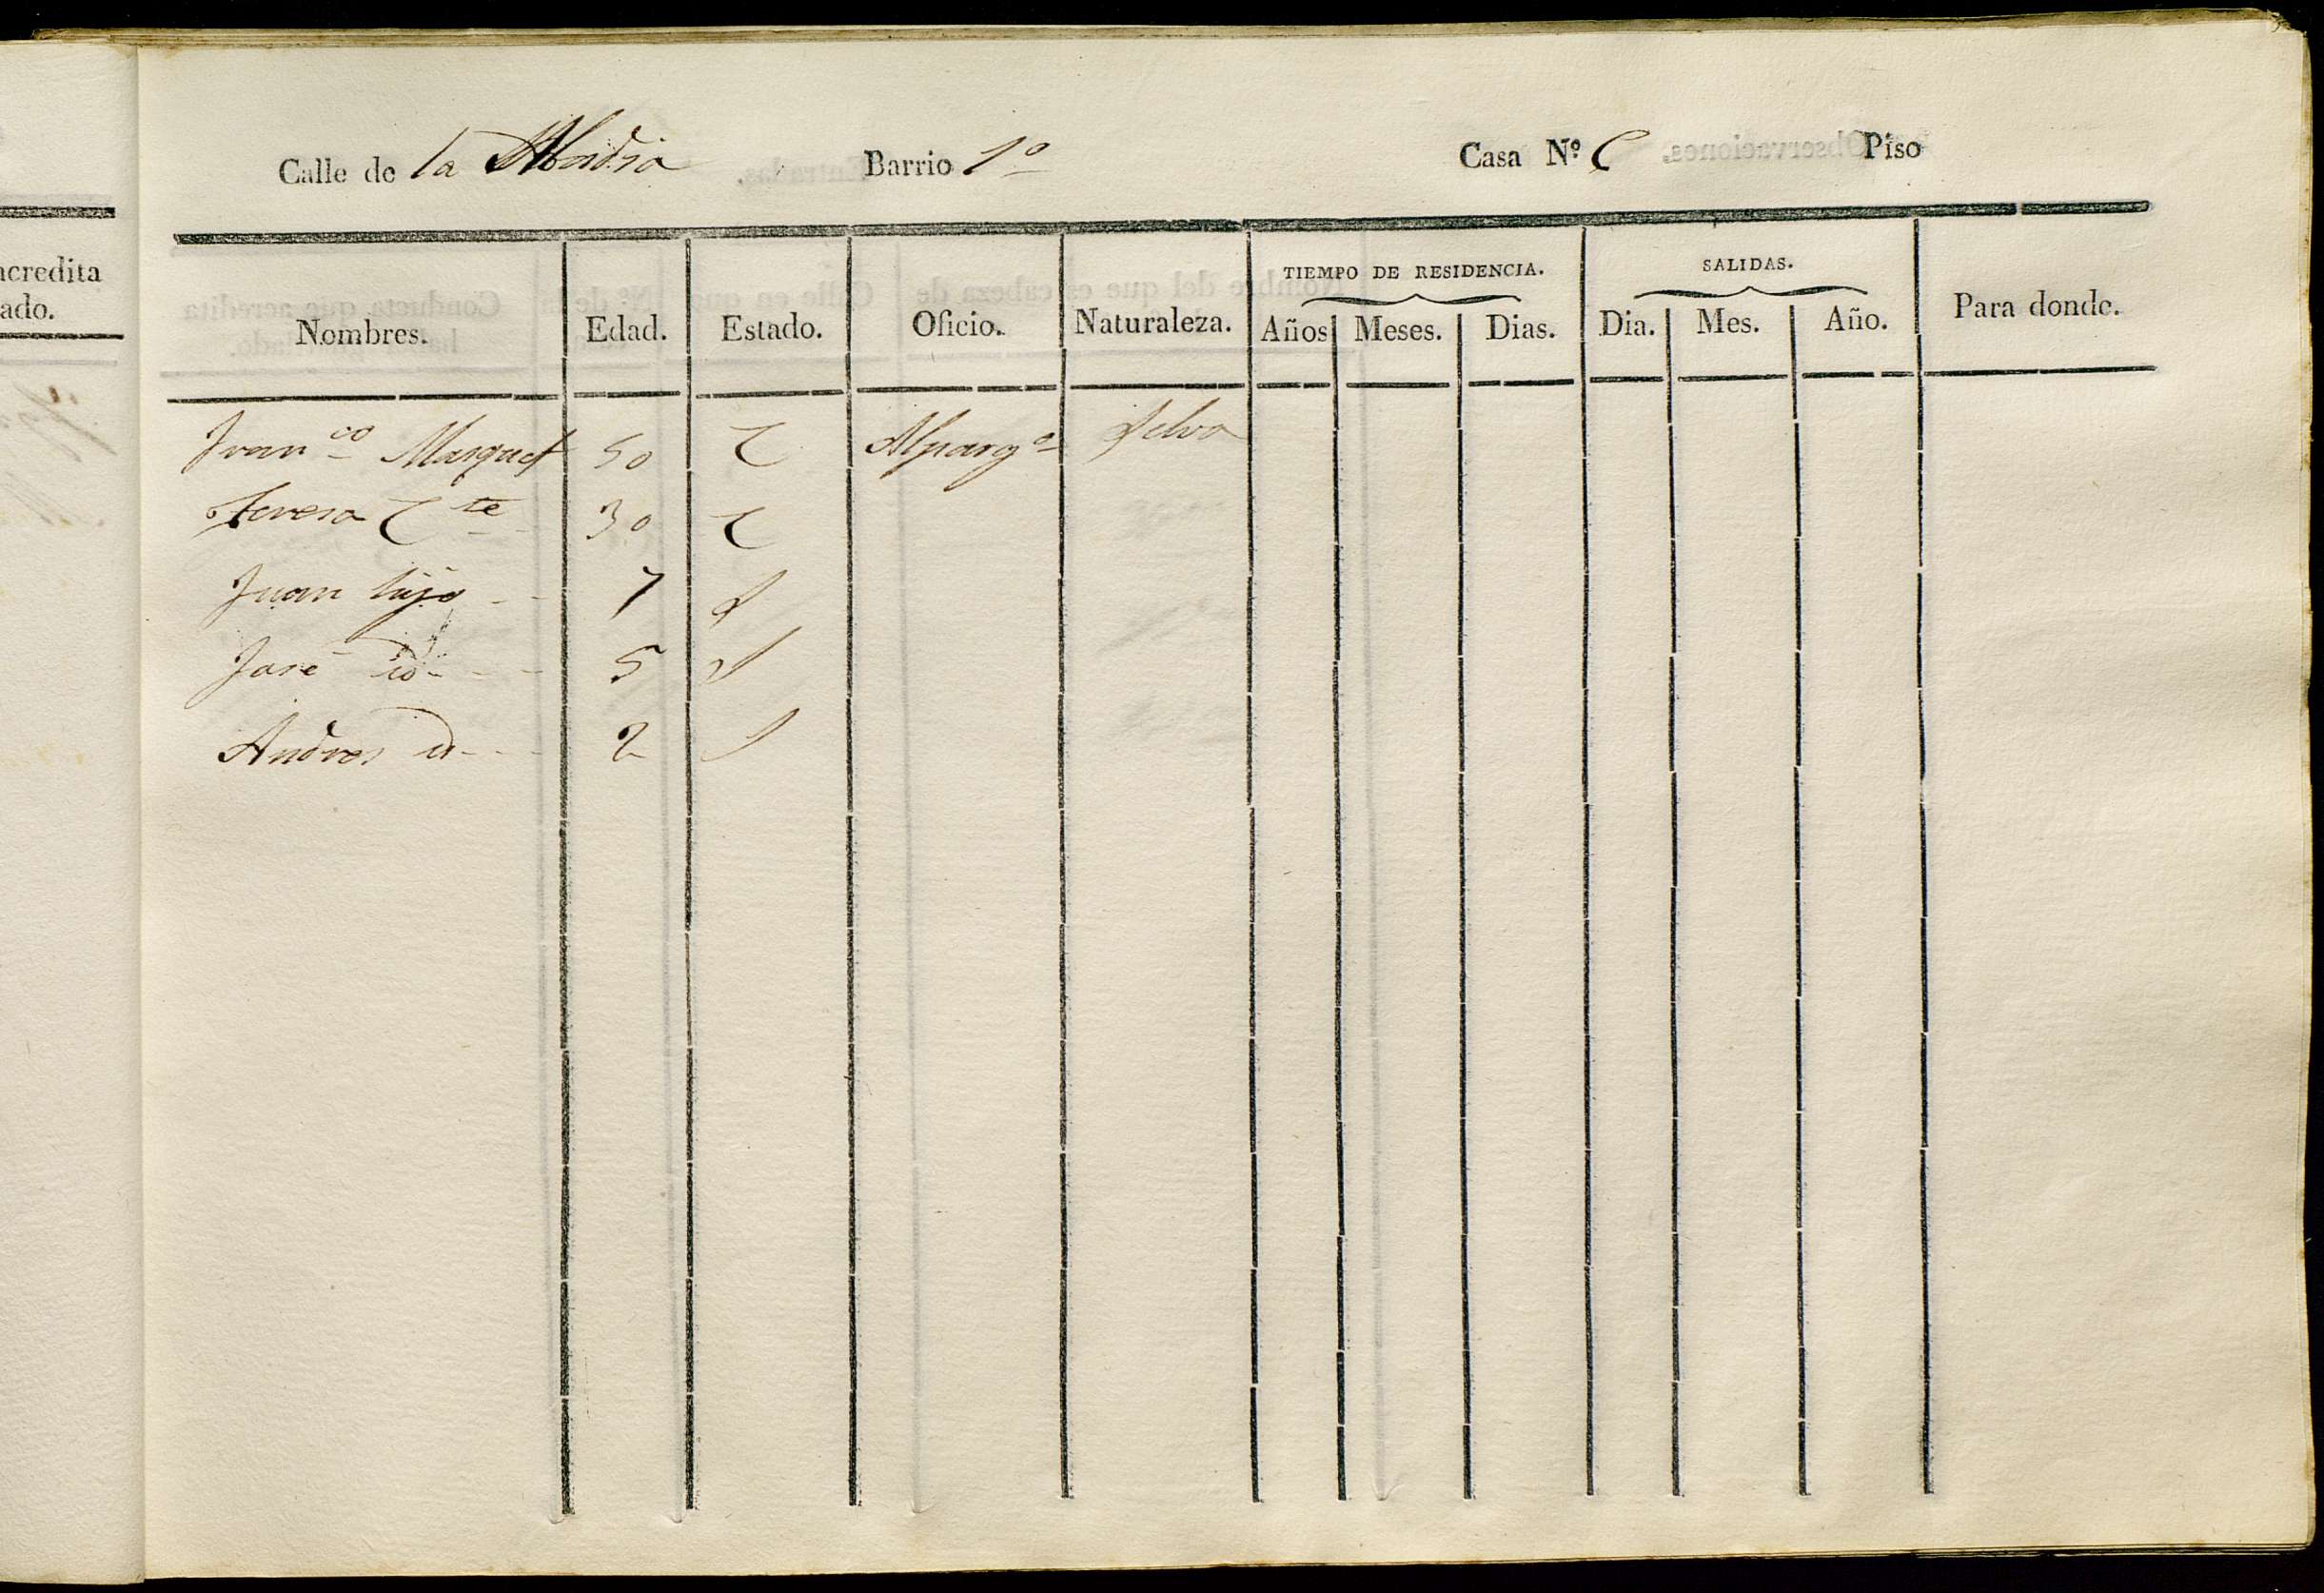 Calle de la Abadia Barrio 1º Casa Nº C Piso
acredita
ado.
Nombres. Edad. Estado. Oficio. Naturaleza. TIEMPO DE RESIDENCIA. Años Meses. Dias. SALIDAS. Dia. Mes. Año. Para donde.
Franco Marquet 50 C Alpargo Selva
Teresa C te 30 C
Juan hijo -- 7 S
José id -- 5 S
Andres id -- 2 S